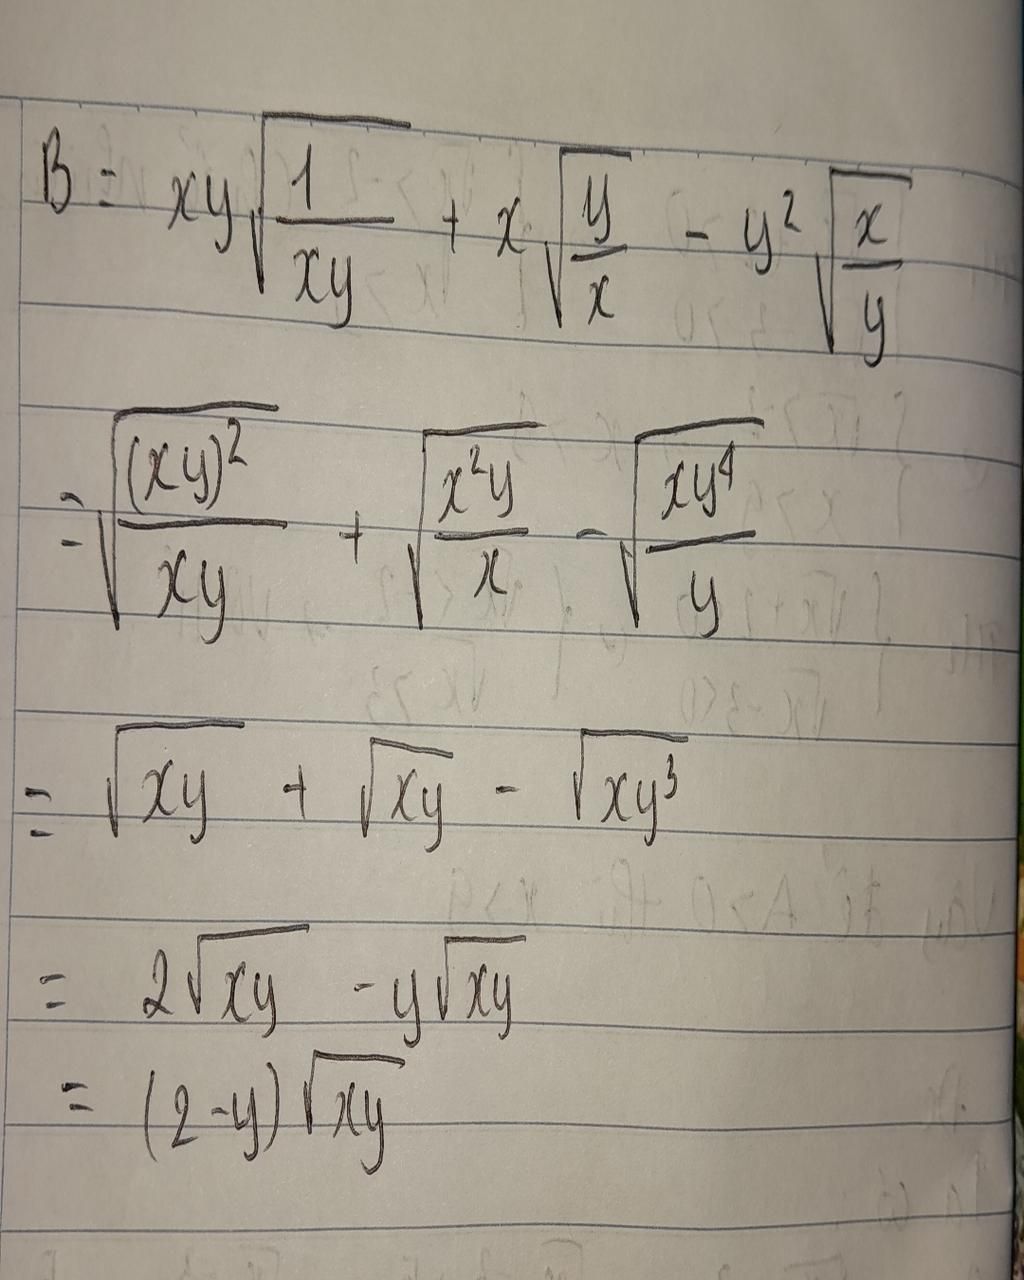 B = xy√(1/xy) + x√(y/x) - y²√(x/y)
= √((xy)²/xy) + √(x²y/x) - √(xy⁴/y)
= √xy + √xy - √xy³
= 2√xy - y√xy
= (2-y)√xy